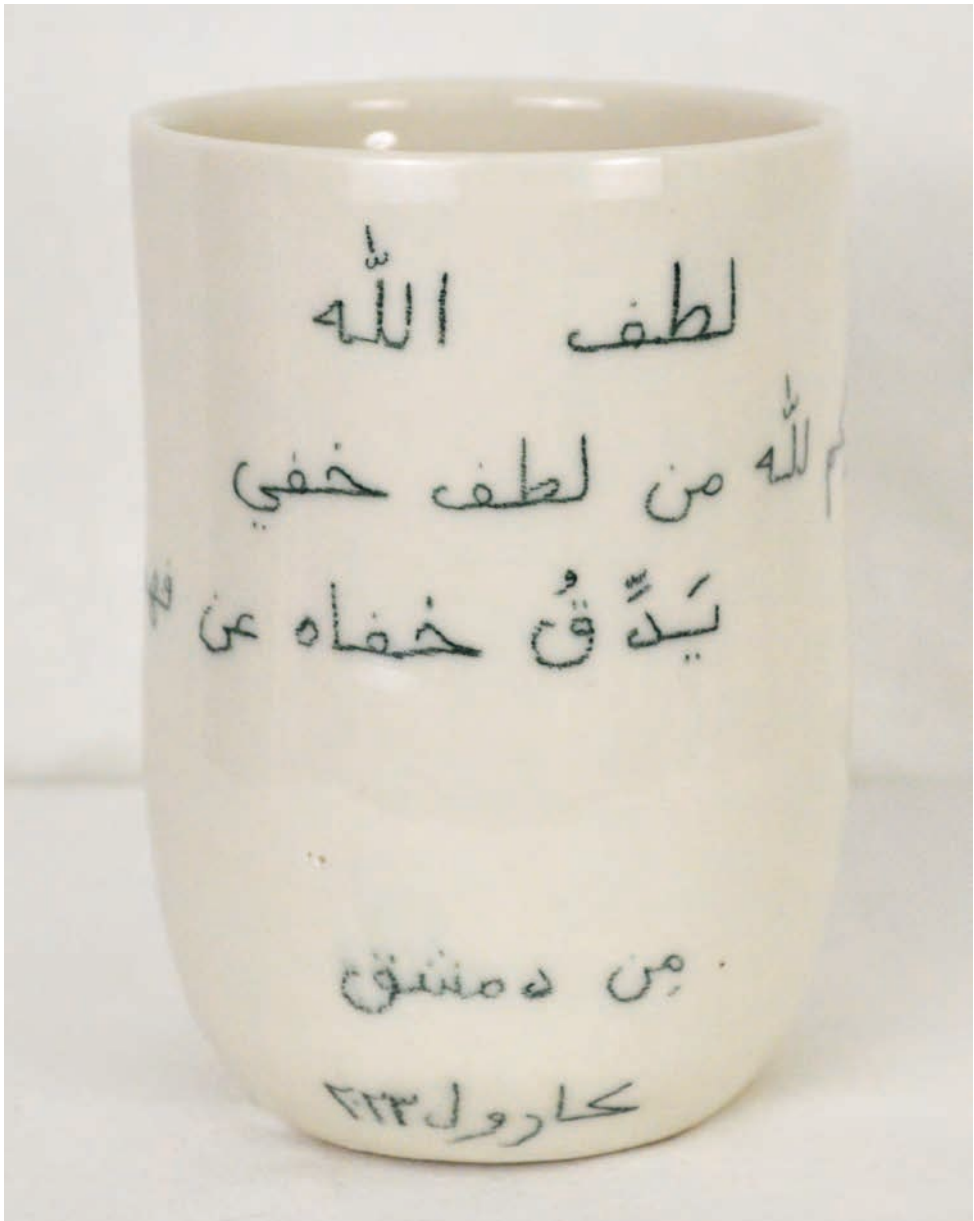 لطف الله
لله من لطف خفي
يَدَّقُ خفاه عن
من دمشق
كارول